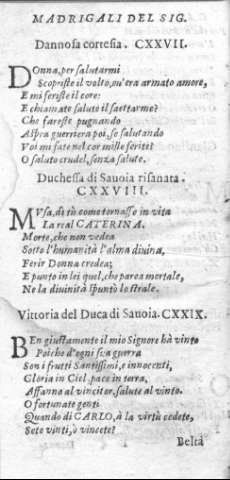 MADRIGALI DEL SIG.
Dannosa cortesia. CXXVII.
Donna, per salutarmi
Scopriste il volto, ou'era armato amore,
E mi feriste il core:
E chiamate salute il saettarme?
Che fareste pugnando
Aspra guerriera poi, se salutando
Voi mi fate nel cor mille ferite?
O saluto crudel, senza salute.
Duchessa di Sauoia risanata.
CXXVIII.
MVsa, dì tù come tornasso in vita
La real CATERINA.
Morte, che non vedea
Sotto l'humanità l'alma diuina,
Ferir Donna credea;
E punto in lei quel, che parea mortale,
Ne la diuinità spuntò lo strale.
Vittoria del Duca di Sauoia. CXXIX.
BEn giustamente il mio Signore hà vinto
Poiche d'ogni sua guerra
Son i frutti Santissimi, e innocenti,
Gloria in Ciel, pace in terra,
Affanno al vincitor, salute al vinto.
O fortunate genti
Quando di CARLO, à la virtù cedete,
Sete vinti, ò vincete?
Beltà